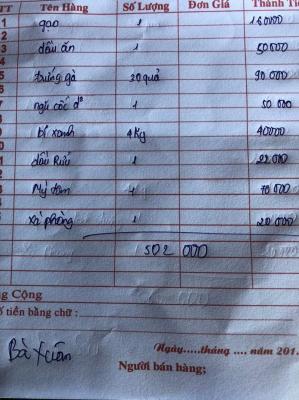 TT Tên Hàng Số Lượng Đơn Giá Thành Ti
gạo 1
dầu ăn 1 50000
trứng gà 30 quả 90 000
ngũ cốc 1 50 000
bí xanh 4 Kg 40000
dầu 1 22 000
Mỳ tôm 70 000
xà phòng 1 20 000
502 000
ng Cộng
ố tiền bằng chữ :
Ngày.....tháng .... năm 201.
Bà Xuân
Người bán hàng;